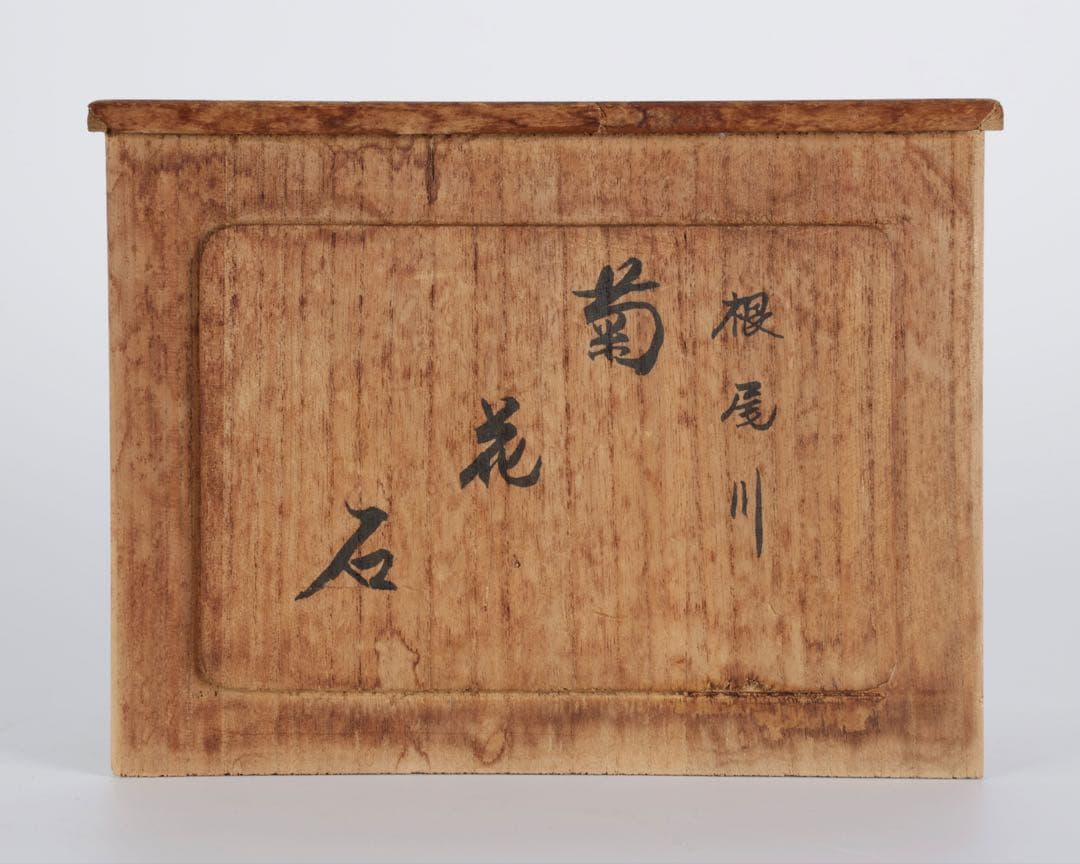 根尾川
菊花石